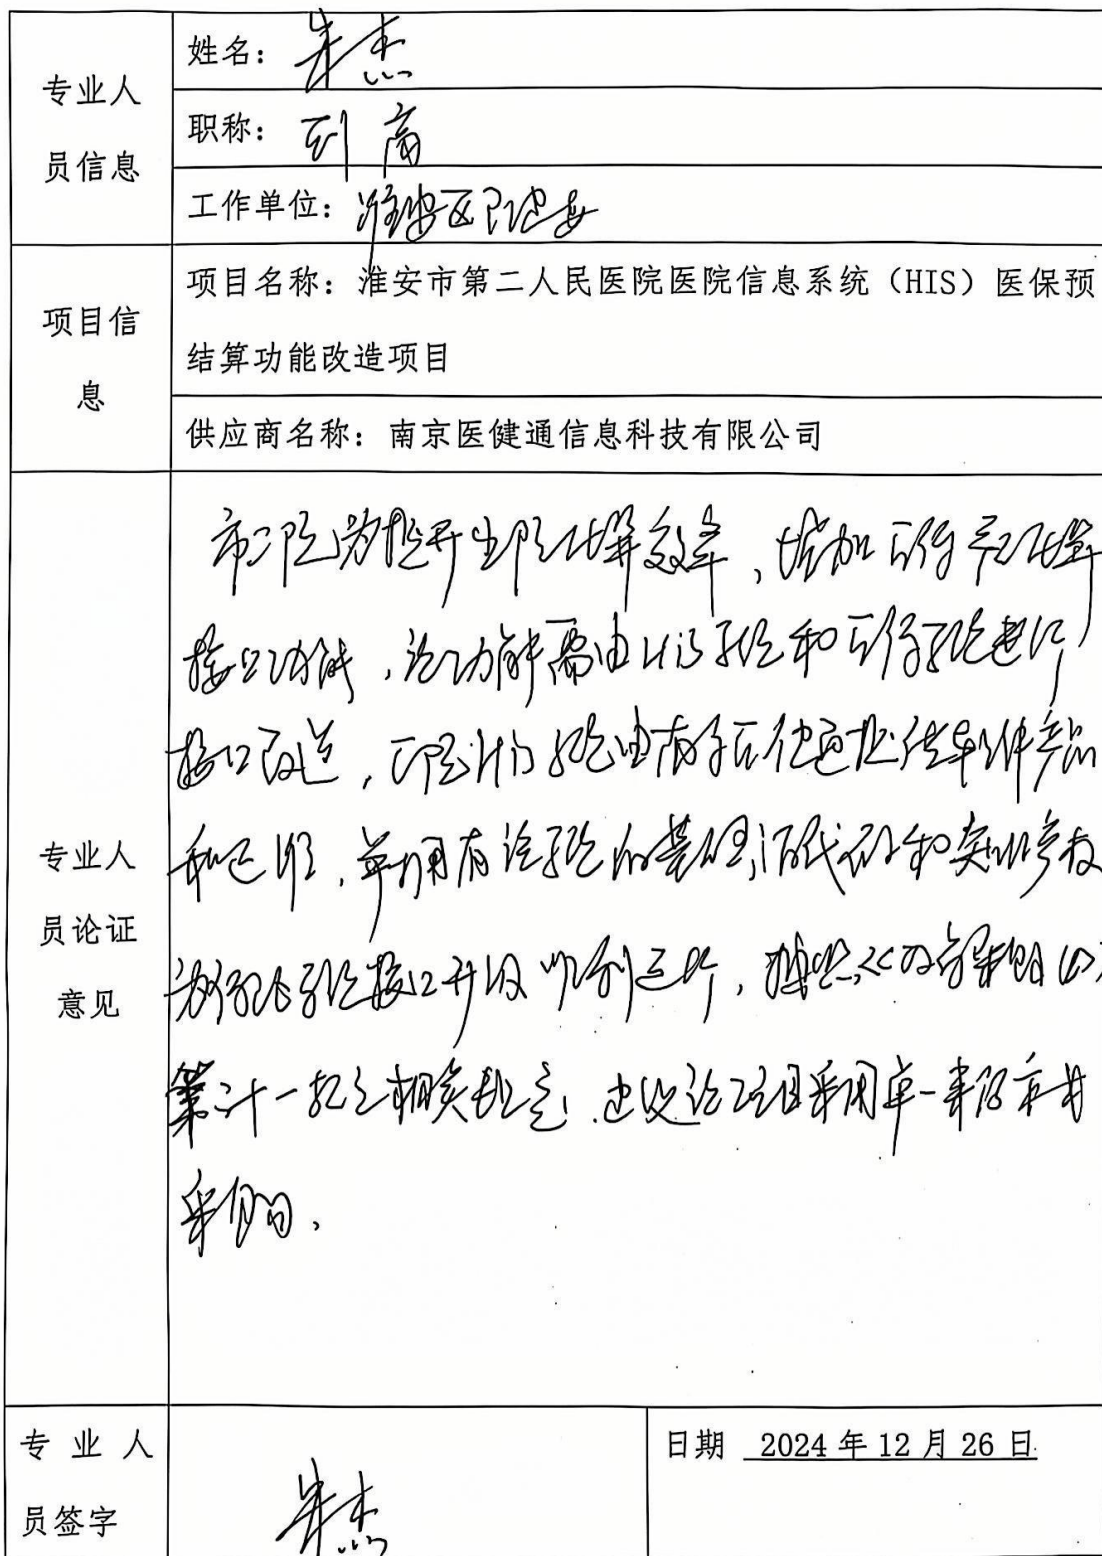 专业人员信息
姓名：朱杰
职称：副高
工作单位：淮安区卫健委
项目信息
项目名称：淮安市第二人民医院医院信息系统（HIS）医保预
结算功能改造项目
供应商名称：南京医健通信息科技有限公司
专业人员论证意见
市二院为提升出院结算效率，增加医保预结算
接口功能，该功能需由HIS系统和医保系统进行
接口改造，医院HIS系统由南京医健通提供软件产品
和运维，并拥有该系统的基础源代码和知识产权
为确保系统接口开发顺利进行，按照《政府采购法》
第三十一条之相关规定，建议该项目采用单一来源方式
采购。
专业人员签字
朱杰
日期 2024年12月26日